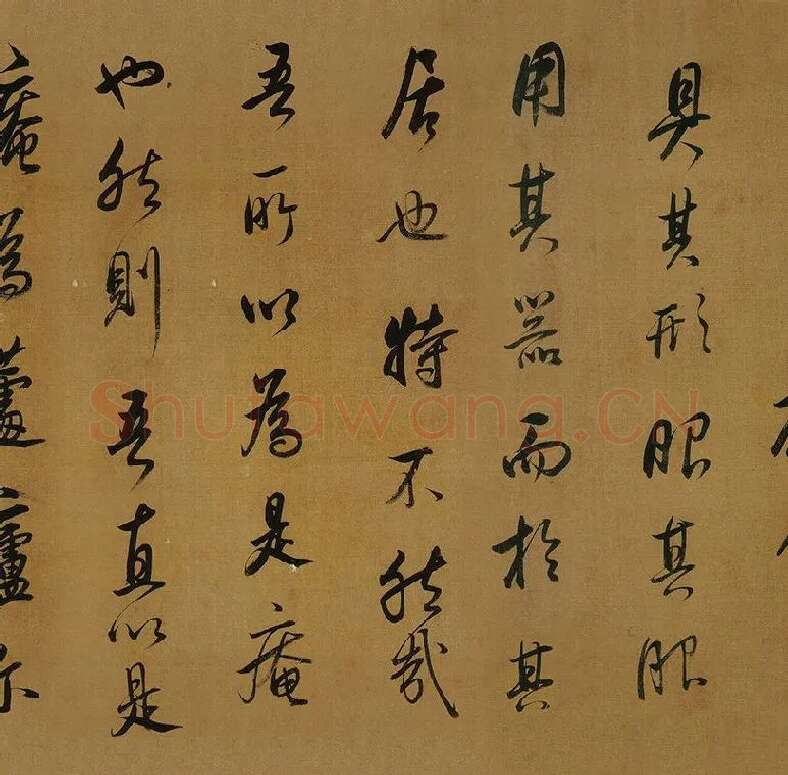 具其形服其服
用其器而於其
居也特不然哉
吾所以為是菴
也然則吾直以是
菴為蘧廬
Shufawang.CN